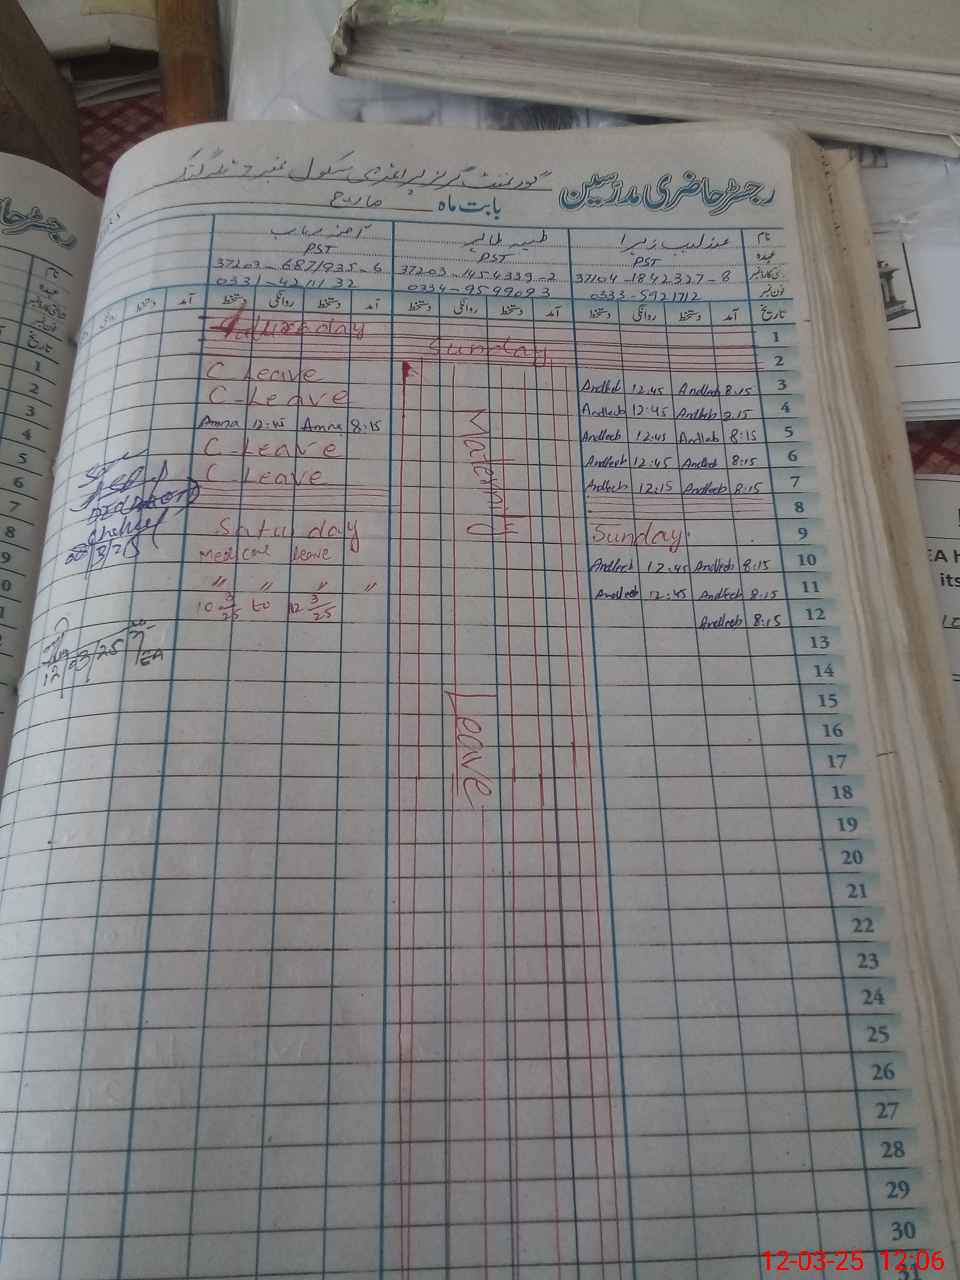 رجسٹر حاضری مدرسین
گورنمنٹ گرلز پرائمری سکول نمبر
بابت ماہ مارچ
نام عندلیب زہرا طیبہ آمنہ رباب
عہدہ PST PST PST
37104-1842327-8 37203-1454339-2 37203-6871935-6
فون نمبر 0333-5921712 0334-9599093 0331-4211132
تاریخ آمد دستخط روانگی دستخط آمد دستخط روانگی دستخط آمد دستخط روانگی دستخط
1
2 Sunday
3 Andleeb 12:45 Andleeb 8:15 C Leave
4 Andleeb 12:45 Andleeb 8:15 C-Leave
5 Andleeb 12:45 Andleeb 8:15 Amna 12:45 Amna 8:15
6 Andleeb 12:45 Andleeb 8:15 C-Leave
7 Andleeb 12:15 Andleeb 8:15 C Leave
8
9 Sunday Saturday
10 Andleeb 12:45 Andleeb 8:15 Medical leave
11 Andleeb 12:45 Andleeb 8:15 " " " "
12 Andleeb 8:15 10 3/25 to 12 3/25
Maternity Leave
13
14
15
16
17
18
19
20
21
22
23
24
25
26
27
28
29
30
12/03/25
AEA
رجسٹر حا
نام
عہدہ
تاریخ
1
2
3
4
5
6
7
8
9
0
1
EA h
its
12-03-25 12:06